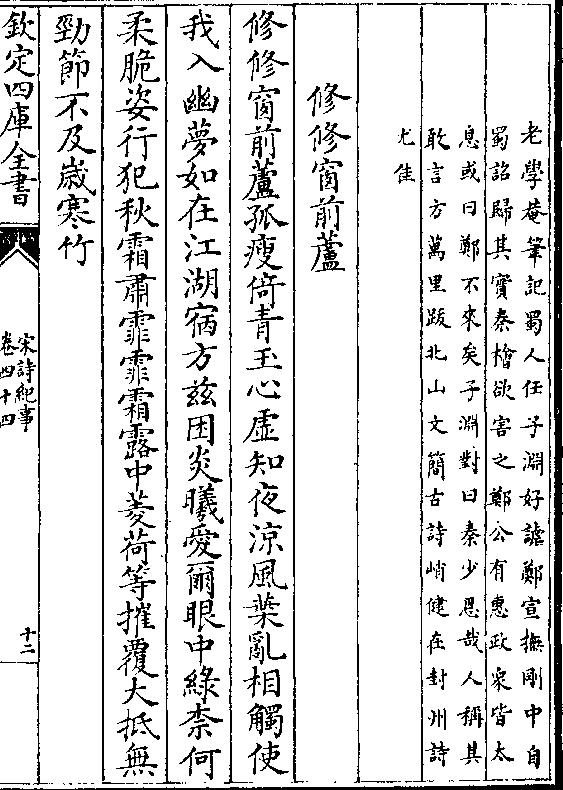 老學菴筆記蜀人任子淵好謔鄭宣撫剛中自
蜀詔歸其實秦檜欲害之鄭公有惠政衆皆太
息或曰鄭不來矣子淵對曰秦少恩哉人稱其
敢言方萬里跋北山文簡古詩峭健在封州詩
尤佳
修修窗前蘆
修修窗前蘆孤瘦倚青玉心虛知夜涼風葉亂相觸使
我入幽夢如在江湖宿方兹困炎曦愛爾眼中綠柰何
柔脆姿行犯秋霜肅霏霏霜露中菱荷等摧覆大抵無
勁節不及嵗寒竹
欽定四庫全書
宋詩紀事
卷四十四
十二